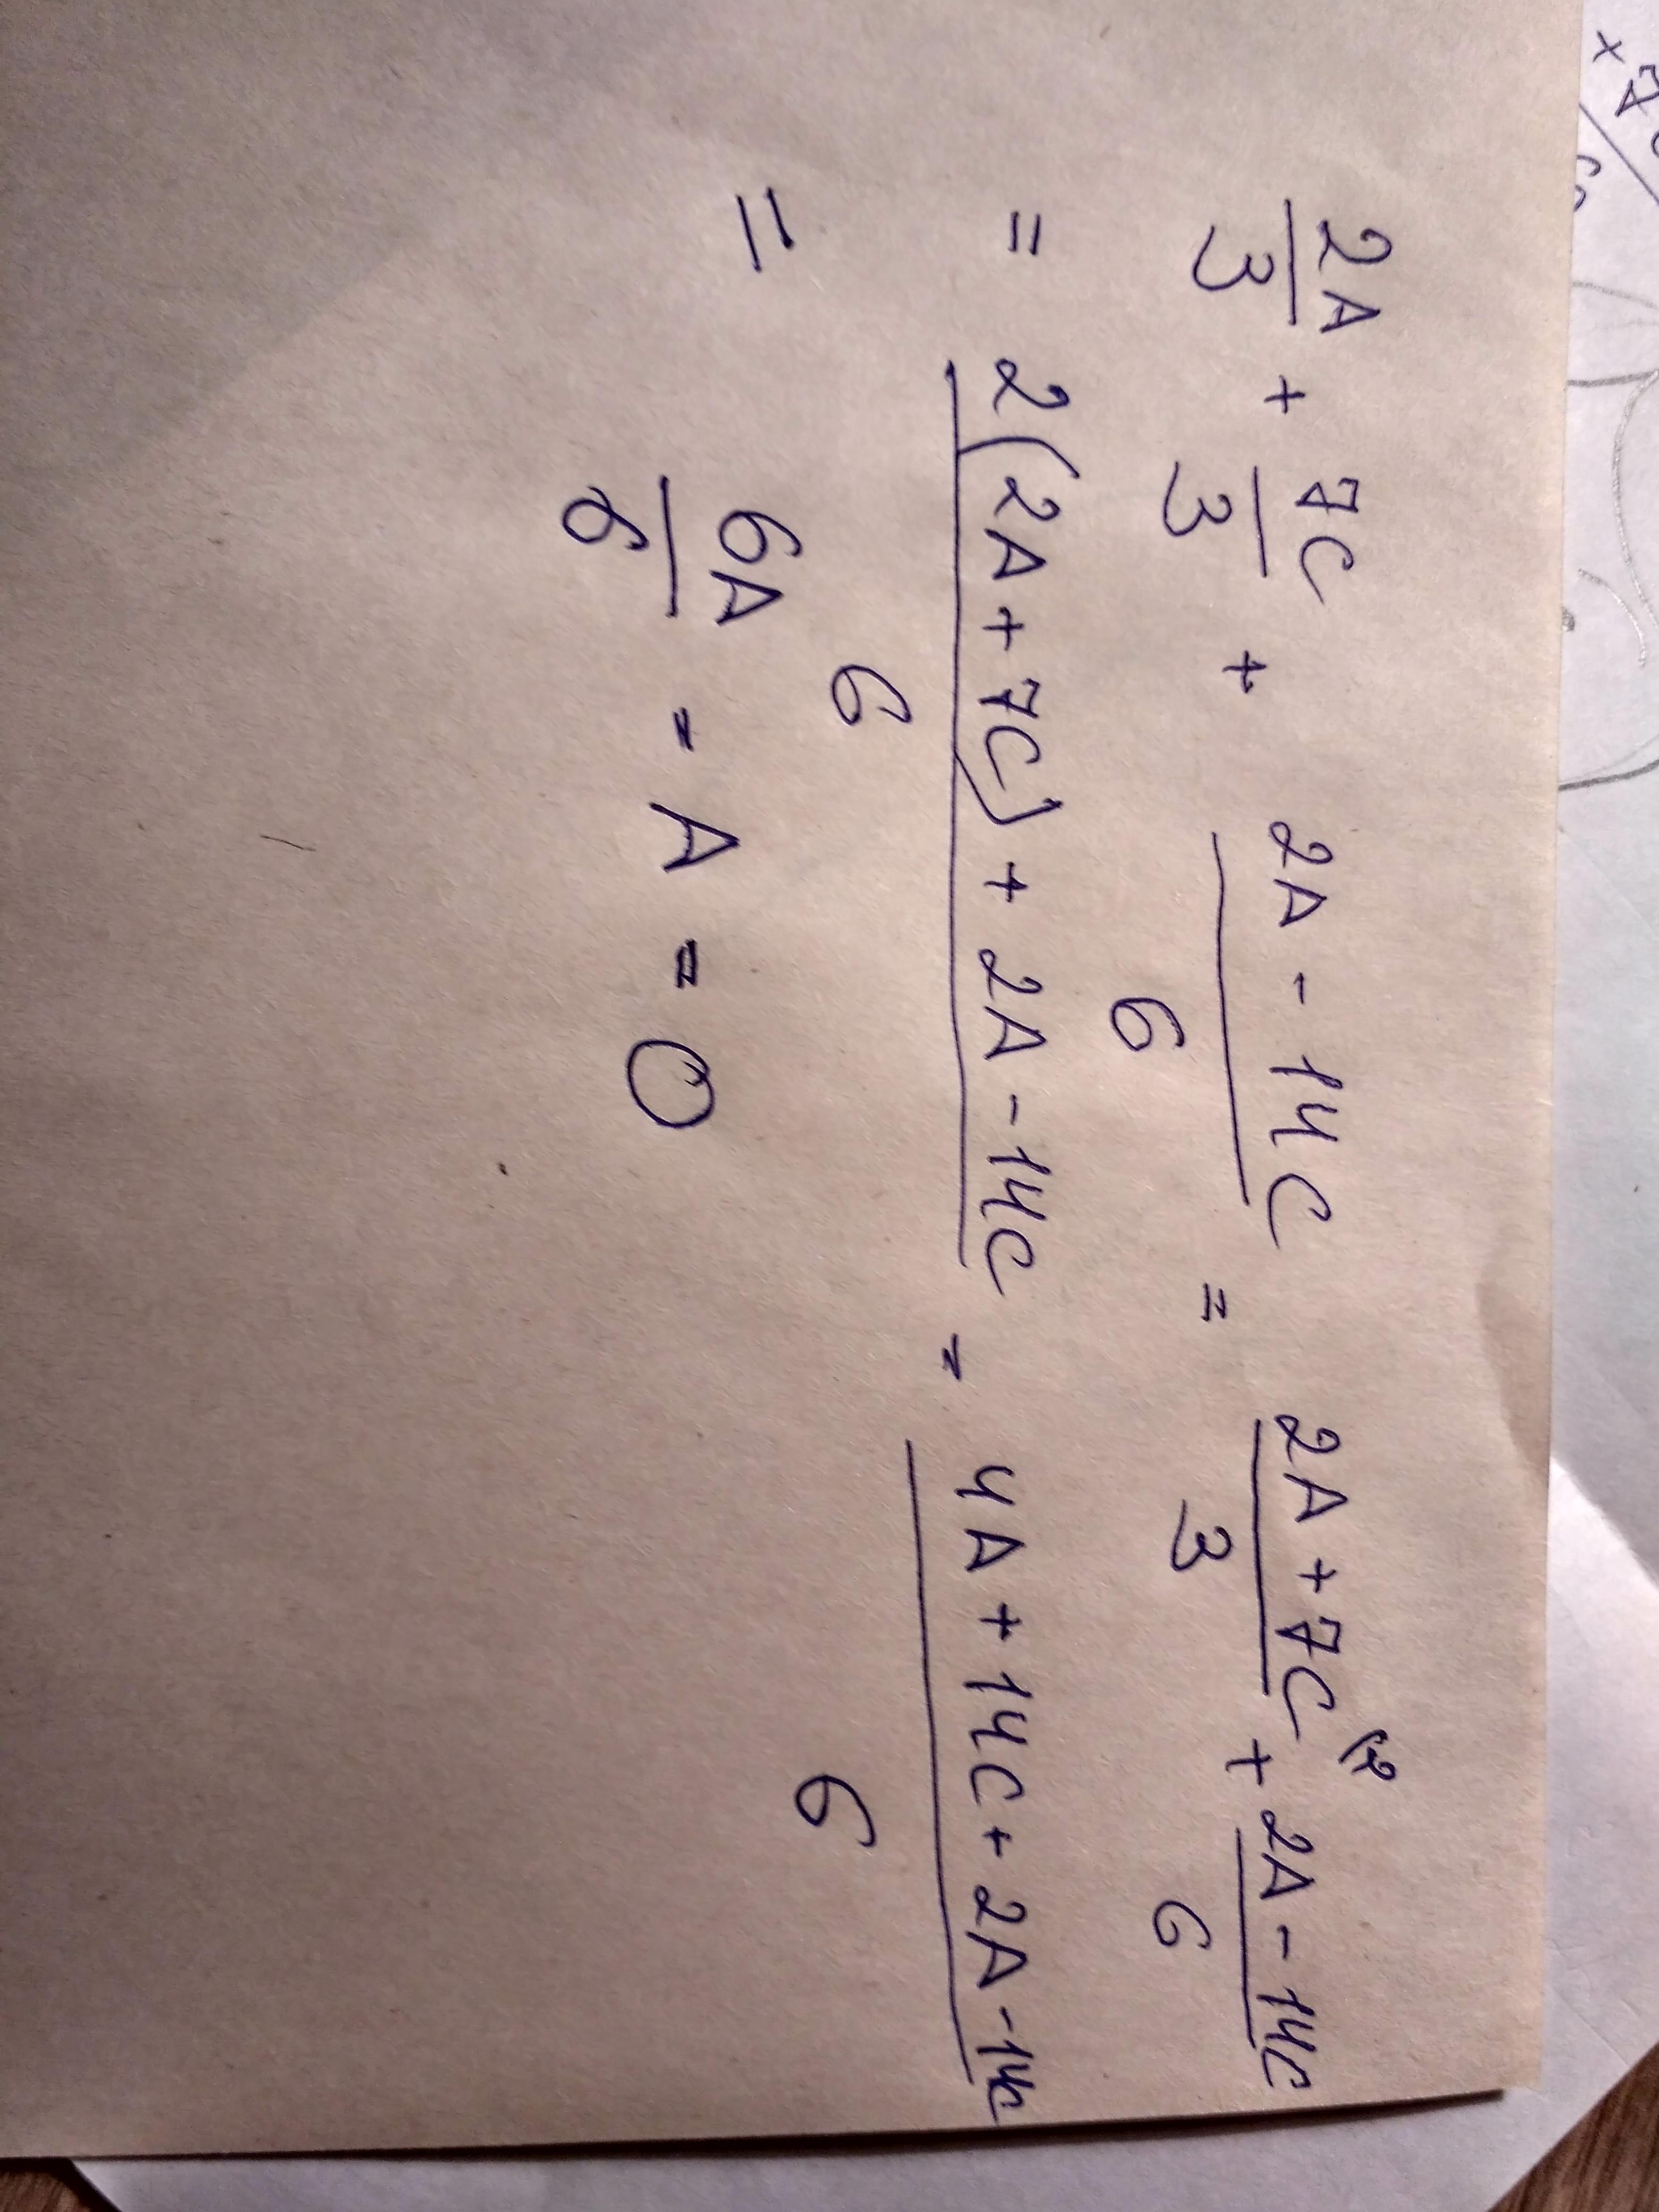 2A/3 + 7C/3 + (2A - 14C)/6 = (2A + 7C)/3 (2 + (2A - 14C)/6
= (2(2A + 7C) + 2A - 14C)/6 = (4A + 14C + 2A - 14C)/6
= 6A/6 = A = 0